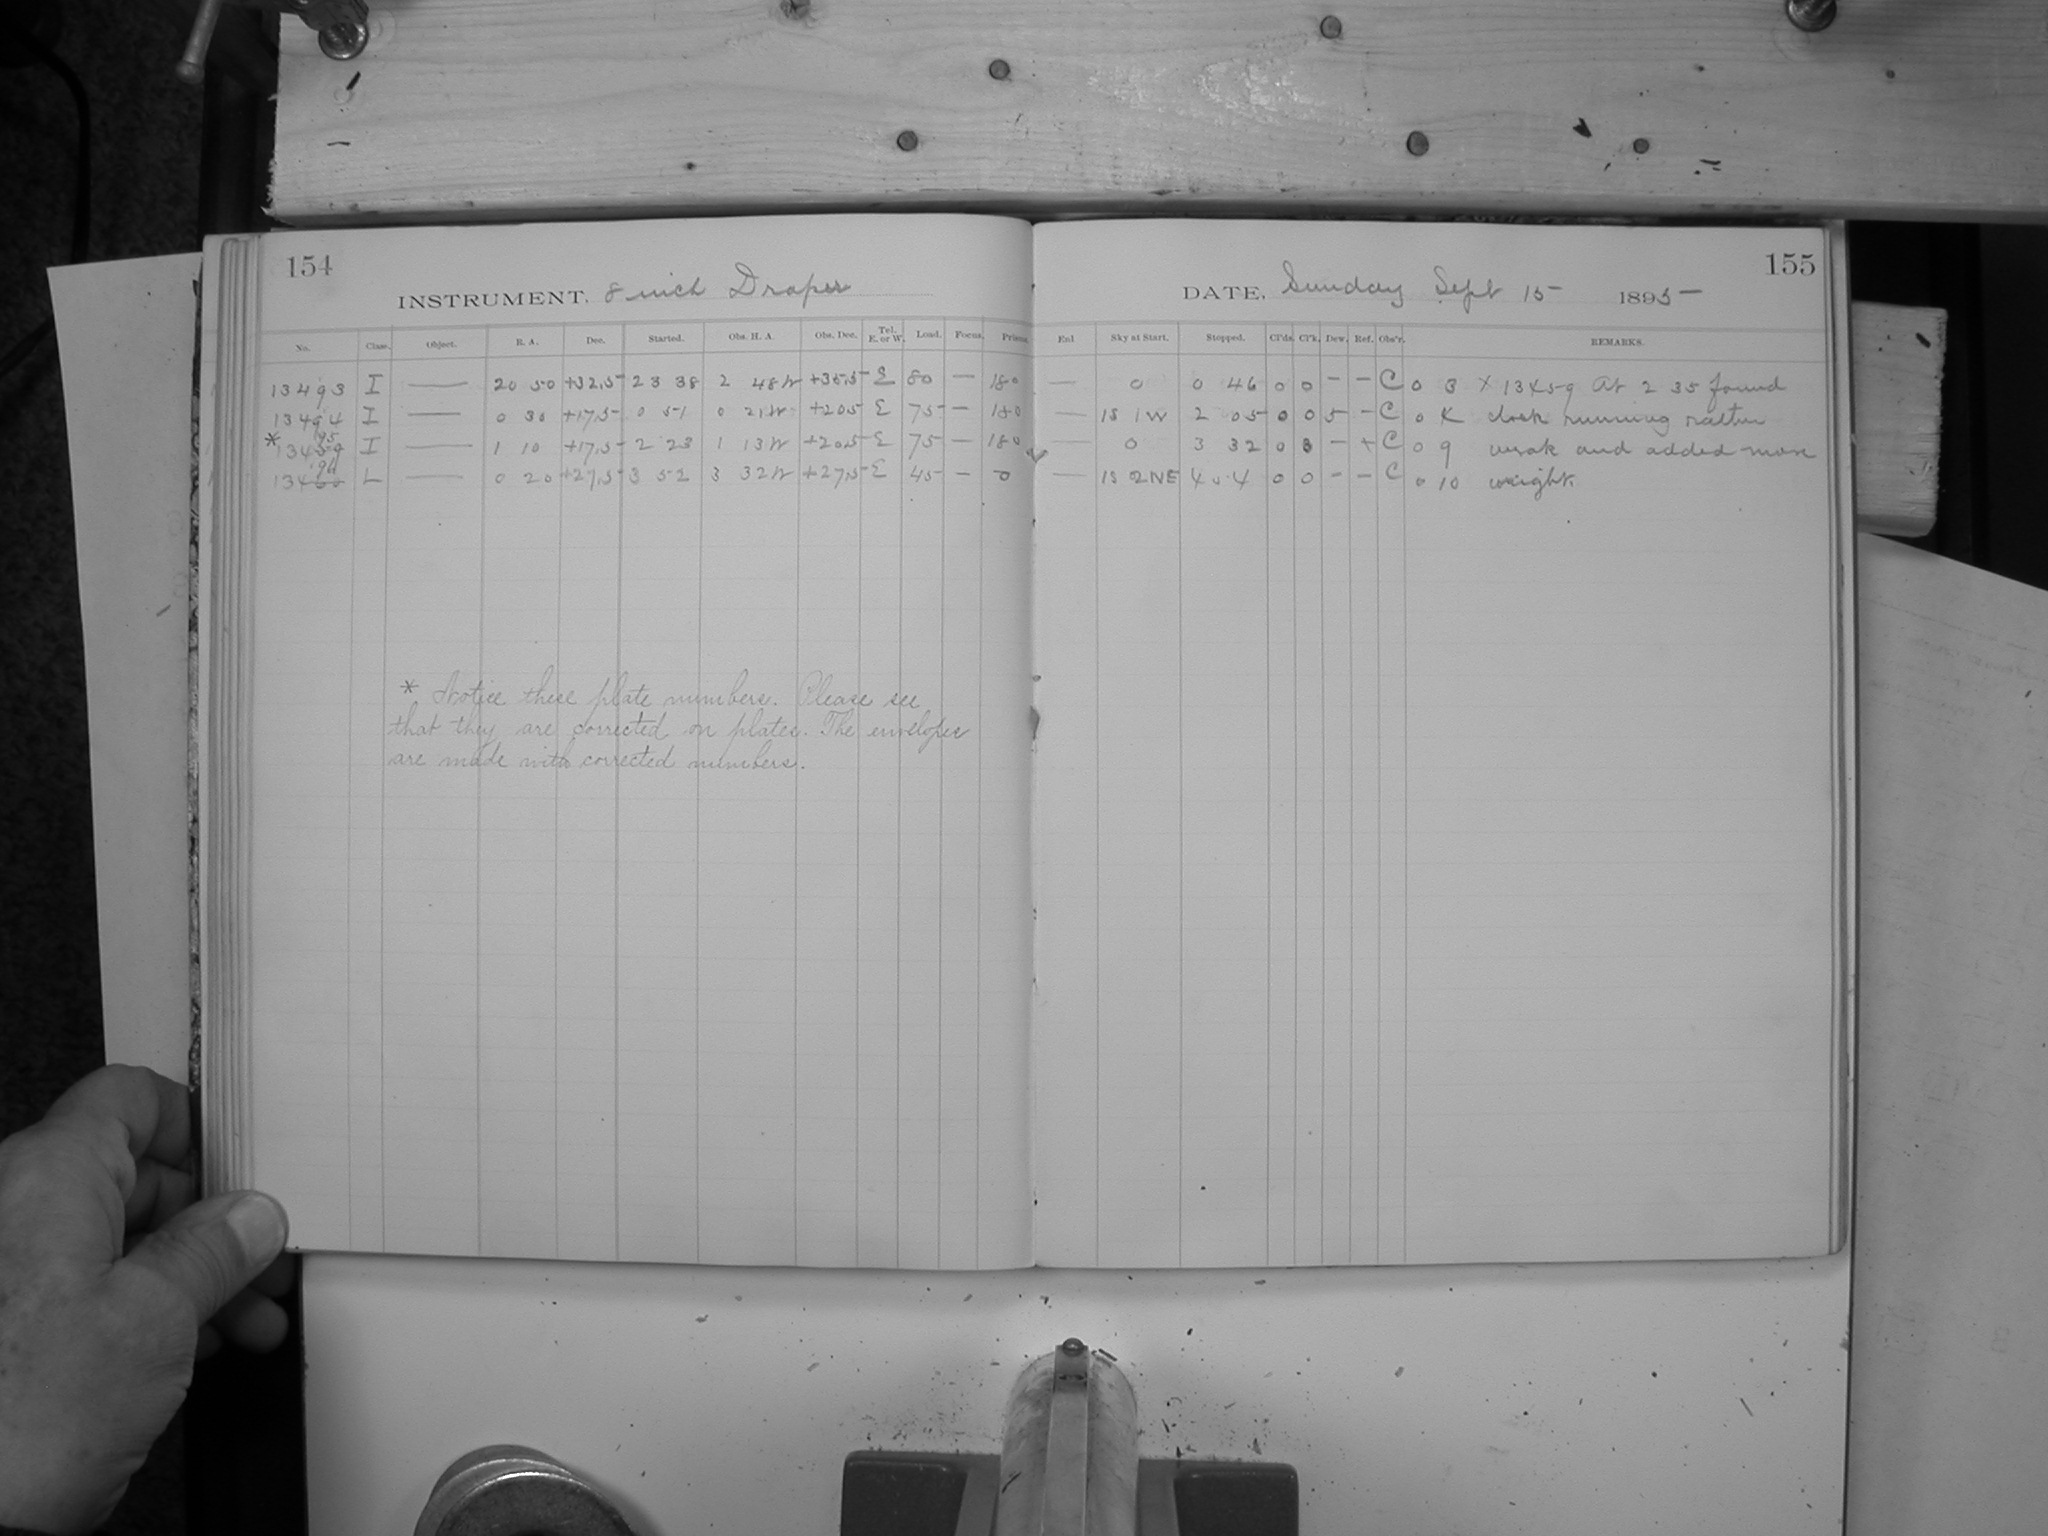 154
INSTRUMENT, 8 inch Draper
No. Class. Object. R. A. Dec. Started. Obs. H. A. Obs. Dec. Tel. E. or W. Load. Focus. Prism.
13493 I — 20 50 +32.5 23 38 2 48W +35.5 E 80 — 180
13494 I — 0 30 +17.5 0 51 0 21W +20.5 E 75 — 180
95
* 13459 I — 1 10 +17.5 2 23 1 13W +20.5 E 75 — 180
96
13460 L — 0 20 +27.5 3 52 3 32W +27.5 E 45 — 0
* Notice these plate numbers. Please see
that they are corrected on plates. The envelopes
are made with corrected numbers.
155
DATE, Sunday Sept 15 1895
Enl Sky at Start. Stopped. Cl'ds. Cl'k. Dew. Ref. Obs'r. REMARKS.
— 0 0 46 0 0 – – C 0 3 X 13459 At 2 35 found
— 1S 1W 2 05 0 0 5 – C 0 K clock running rather
— 0 3 32 0 3 – + C 0 9 weak and added more
— 1S 2NE 4 54 0 0 – – C 0 10 weight.